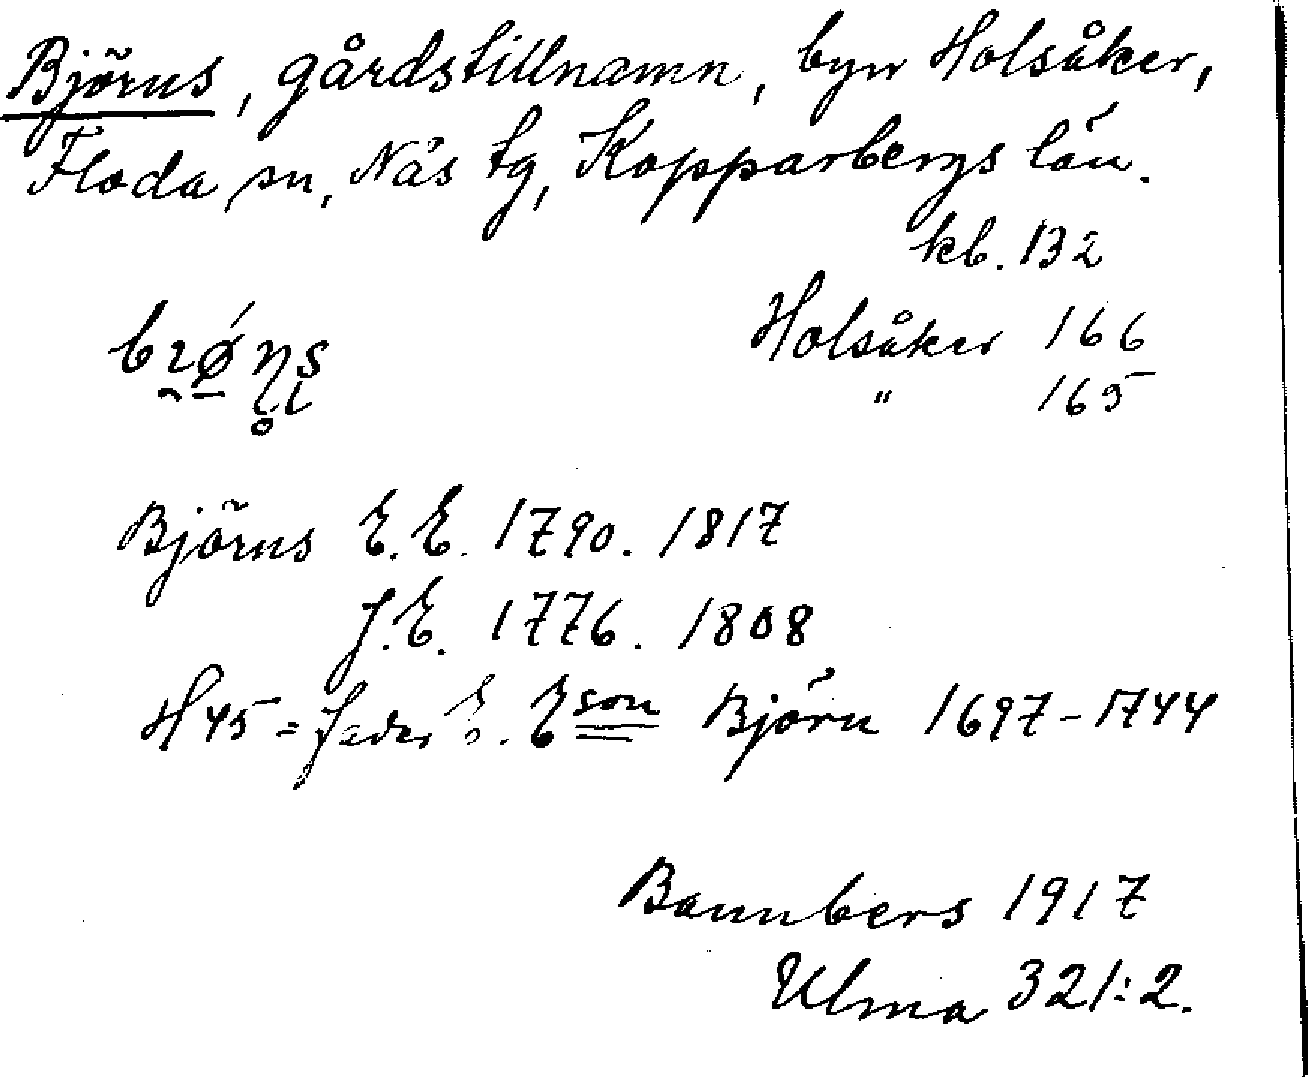 Björns, gårdstillnamn, byn Holsåker,
Floda sn, Nås tg, Kopparbergs län.
kb. 132
Holsåker 166
" 165
Björns E. E. 1790. 1817
J. E. 1776. 1808
H 45 = fader E. Eson Björn 1697-1744
Bannbers 1917
Ulma 321:2.